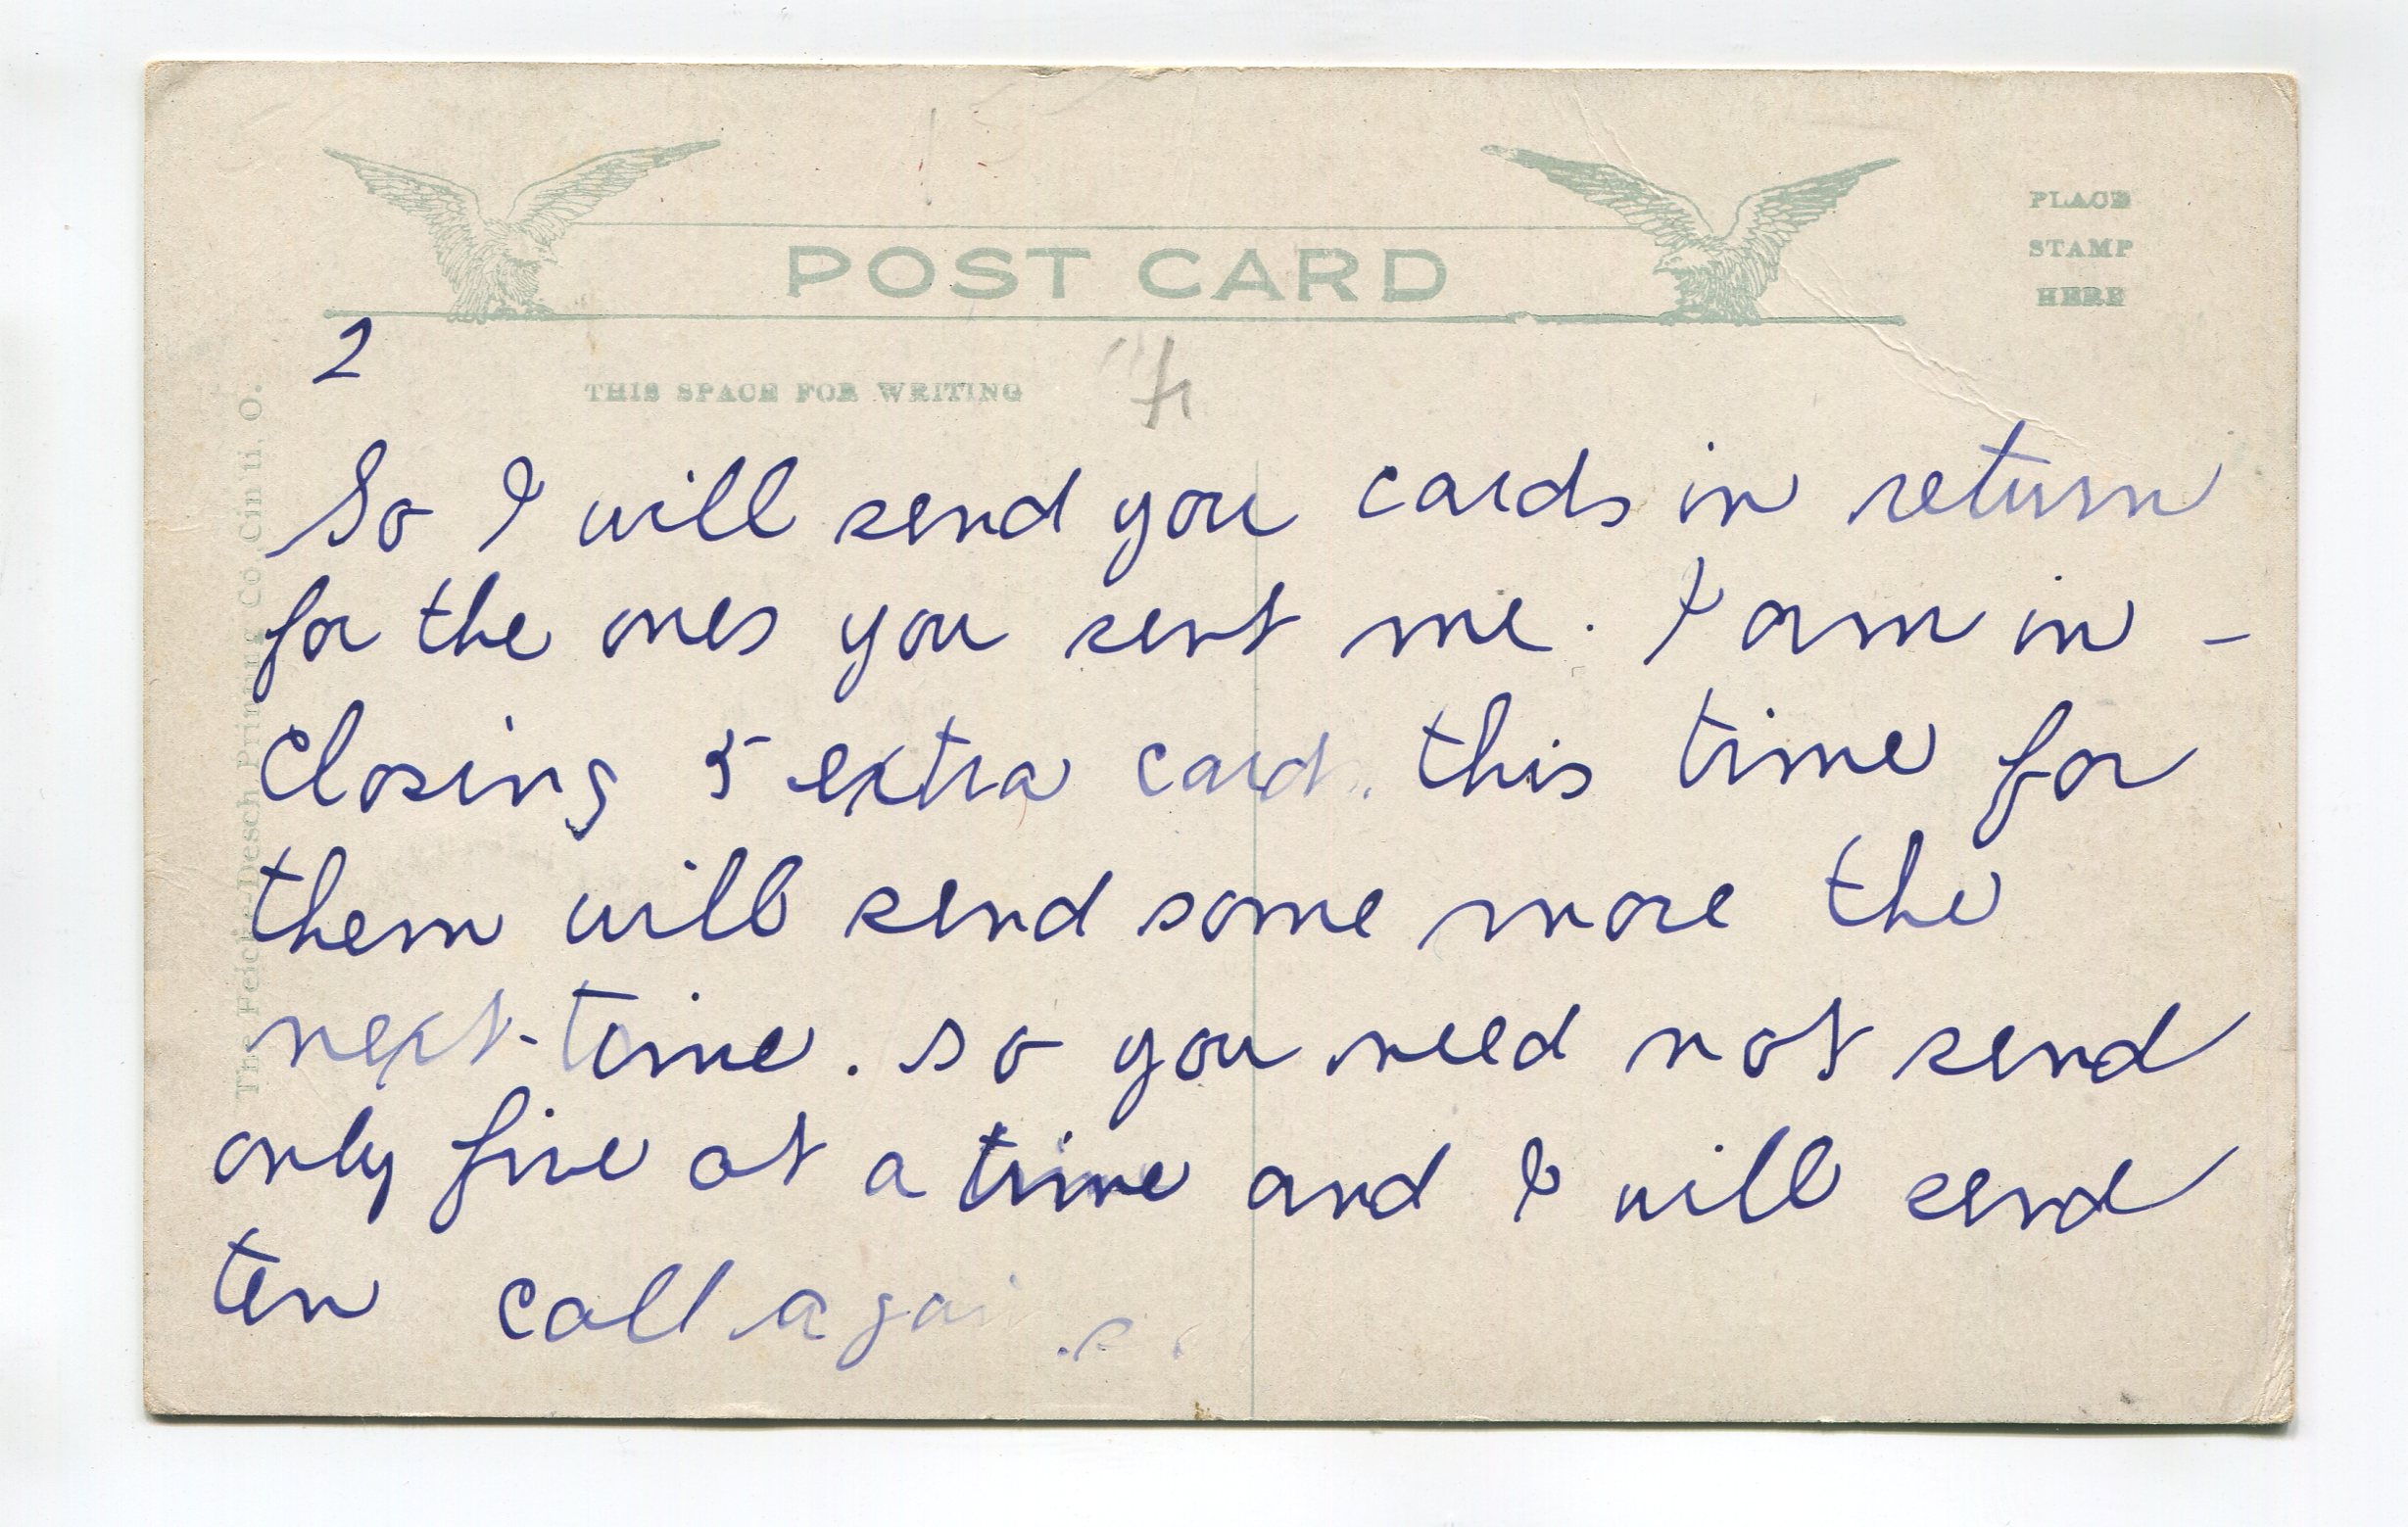 POST CARD
PLACE
STAMP
HERE
2
THIS SPACE FOR WRITING
4
So I will send you cards in return
for the ones you sent me. I am in -
closing 5 extra card. this time for
them will send some more the
next time. so you need not send
only five at a time and I will send
ten call again
The Feicke-Desch Printing Co. Cin'ti, O.